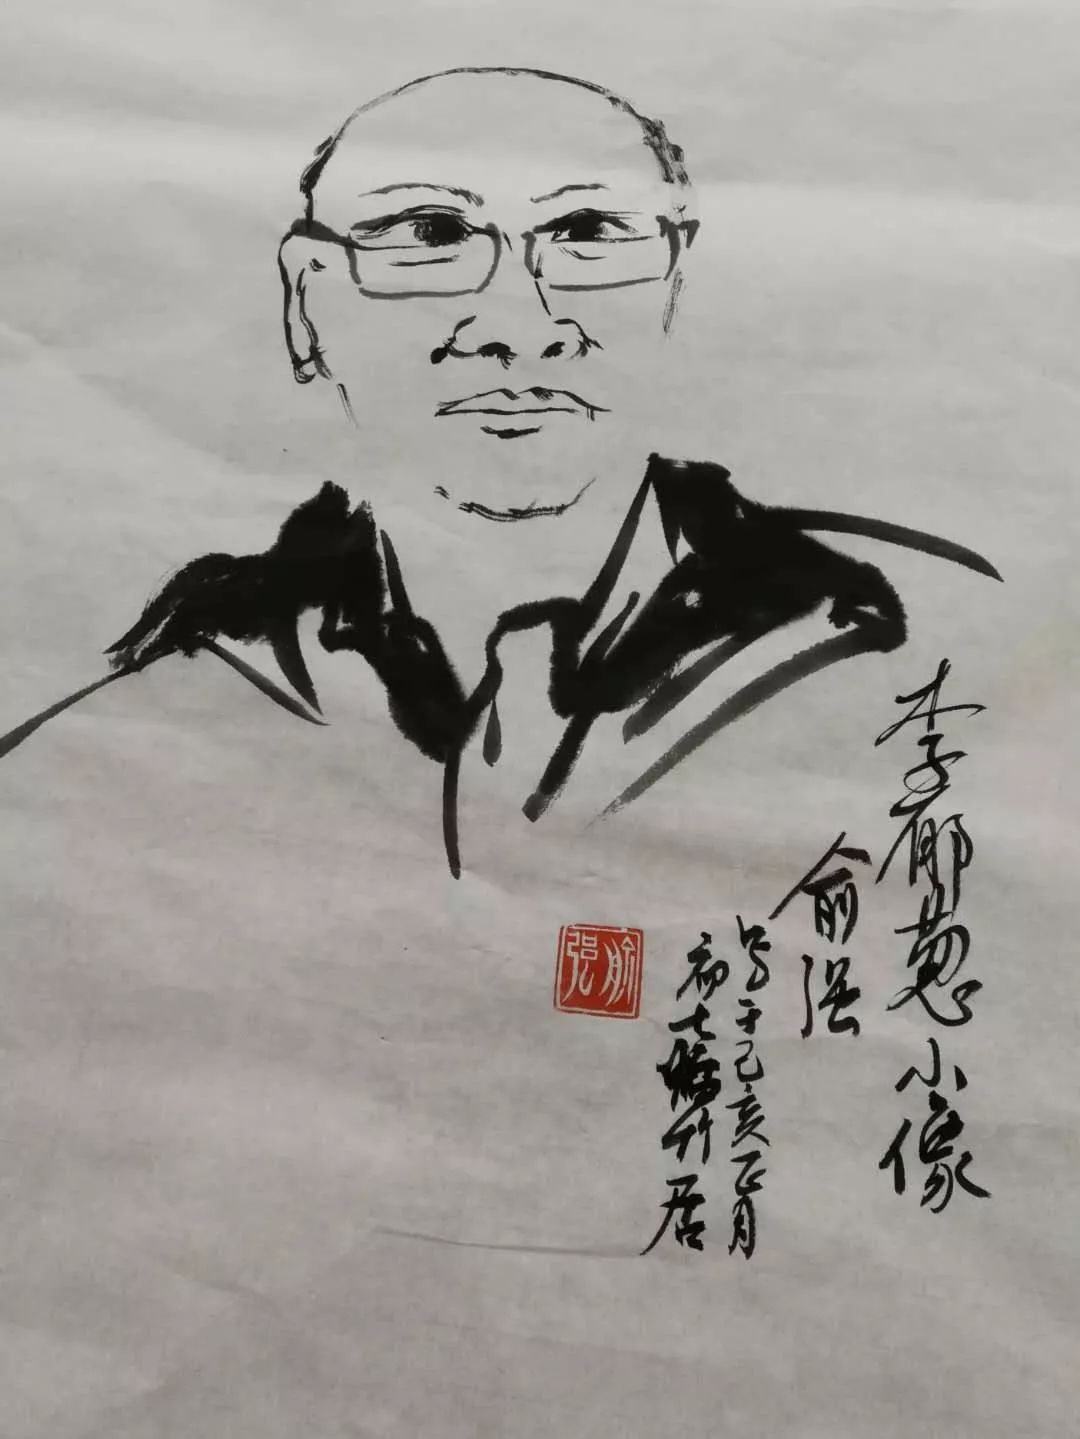 李郁葱小像
俞强
写于己亥正月
初七 竹居
俞强